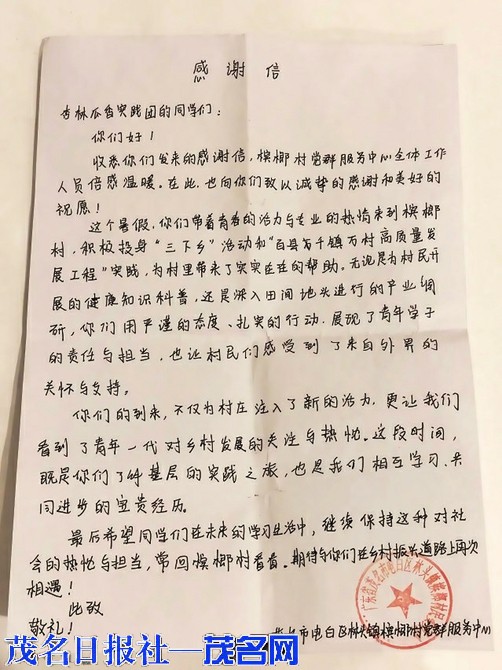 感谢信
杏林瓜香实践团的同学们：
你们好！
收悉你们发来的感谢信，槟榔村党群服务中心全体工作
人员倍感温暖。在此，也向你们致以诚挚的感谢和美好的
祝愿！
这个暑假，你们带着青春的活力与专业的热情来到槟榔
村，积极投身“三下乡”活动和“百县千镇万村高质量发
展工程”实践，为村里带来了实实在在的帮助。无论是为村民开
展的健康知识科普，还是深入田间地头进行的产业调
研，你们用严谨的态度、扎实的行动，展现了青年学子
的责任与担当，也让村民们感受到了来自外界的
关怀与支持。
你们的到来，不仅为村庄注入了新的活力，更让我们
看到了青年一代对乡村发展的关注与热忱。这段时间，
既是你们了解基层的实践之旅，也是我们相互学习、共
同进步的宝贵经历。
最后希望同学们在未来的学习生活中，继续保持这种对社
会的热忱与担当，常回槟榔村看看。期待与你们在乡村振兴道路上再次
相遇！
此致
敬礼！
市电白区林头镇槟榔村党群服务中心
茂名日报社—茂名网